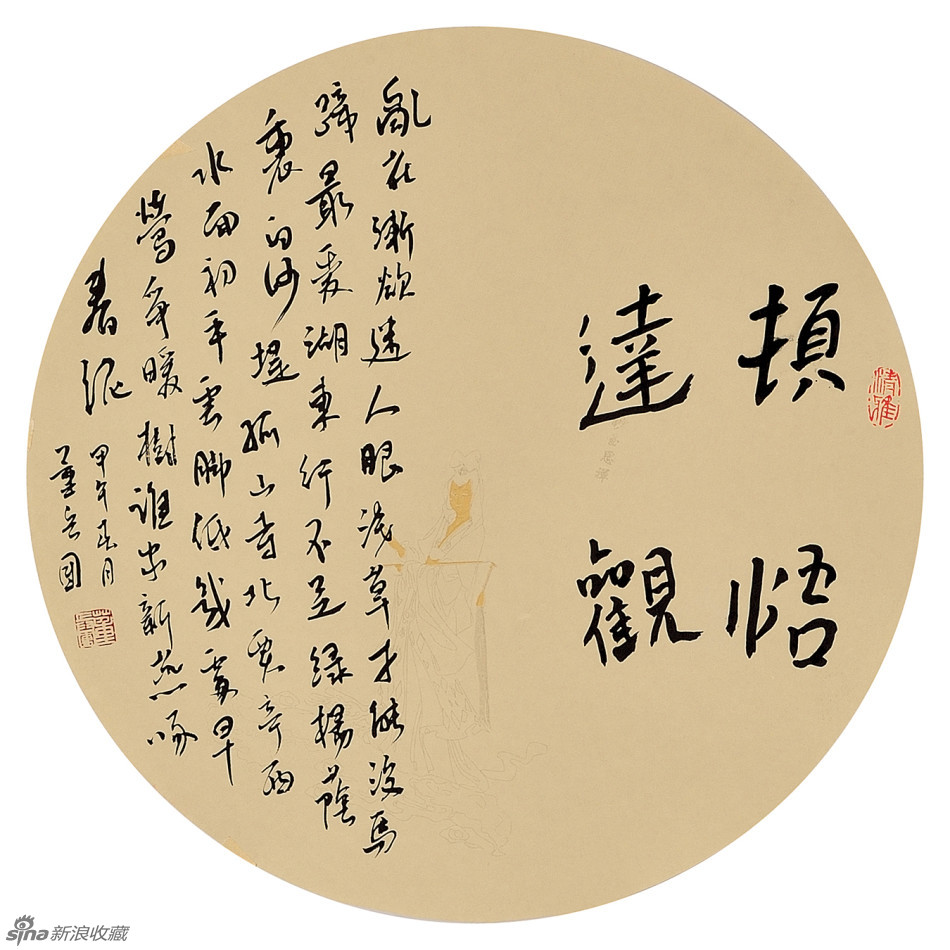 頓悟
達觀
亂花漸欲迷人眼淺草才能沒馬
蹄最愛湖東行不足綠楊蔭
裏白沙堤孤山寺北賈亭西
水面初平雲脚低幾處早
鶯爭暖樹誰家新燕啄
春泥
甲午春月
董
sina新浪收藏